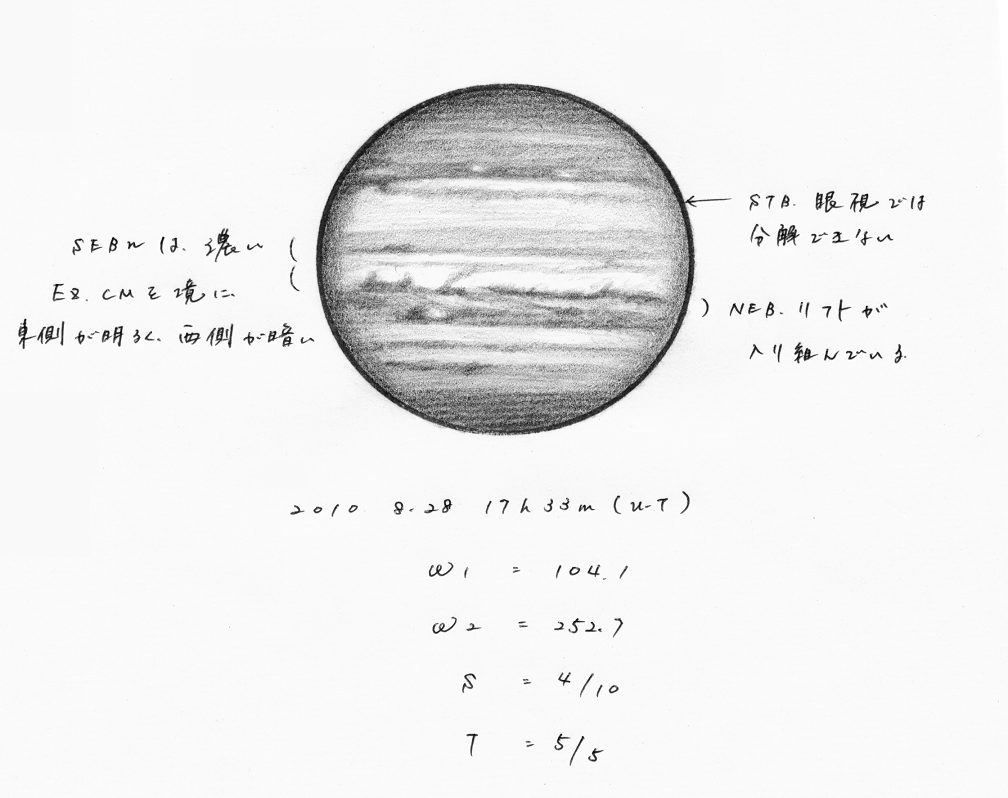 SEBnは、濃い
EZ. CMを境に
東側が明るく、西側が暗い
STB. 眼視では
分解できない
NEB. リフトが
入り組んでいる
2010 8.28 17h33m (U.T)
ω1 = 104.1
ω2 = 252.7
S = 4/10
T = 5/5